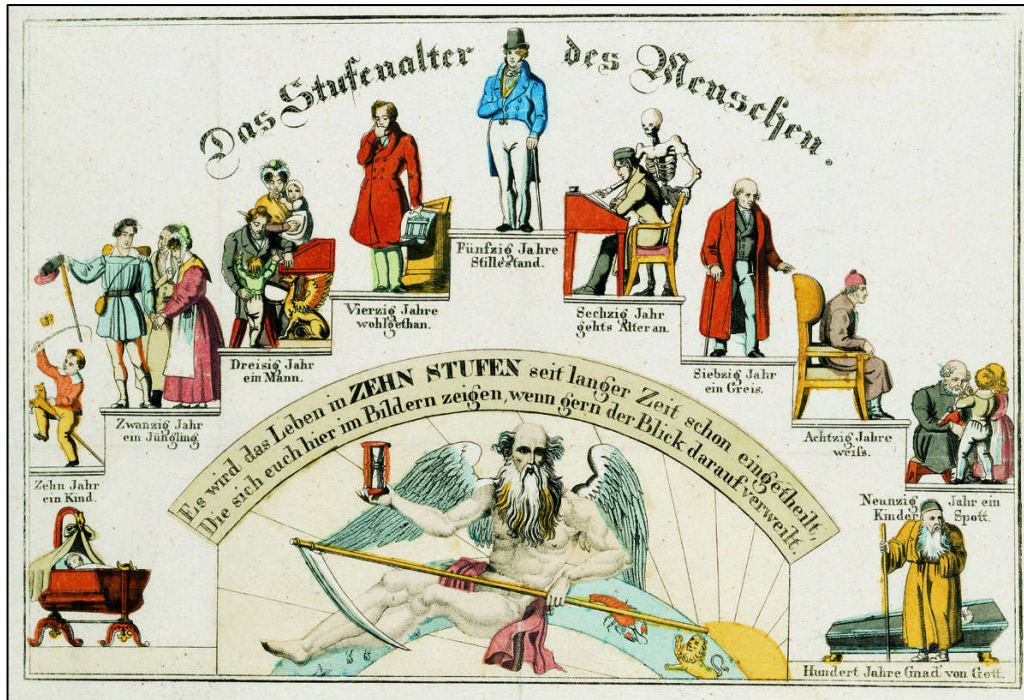 Das Stufenalter des Menschen.
Zehn Jahr
ein Kind.
Zwanzig Jahr
ein Jüngling.
Dreisig Jahr
ein Mann.
Vierzig Jahre
wohlgethan.
Fünfzig Jahre
Stillestand.
Sechzig Jahr
gehts Alter an.
Siebzig Jahr
ein Greis.
Achtzig Jahre
weifs.
Neunzig Jahr ein
Kinder Spott.
Hundert Jahre Gnad' von Gott.
Es wird das Leben in ZEHN STUFEN seit langer Zeit schon eingetheilt,
Die sich euch hier im Bildern zeigen, wenn gern der Blick darauf verweilt.